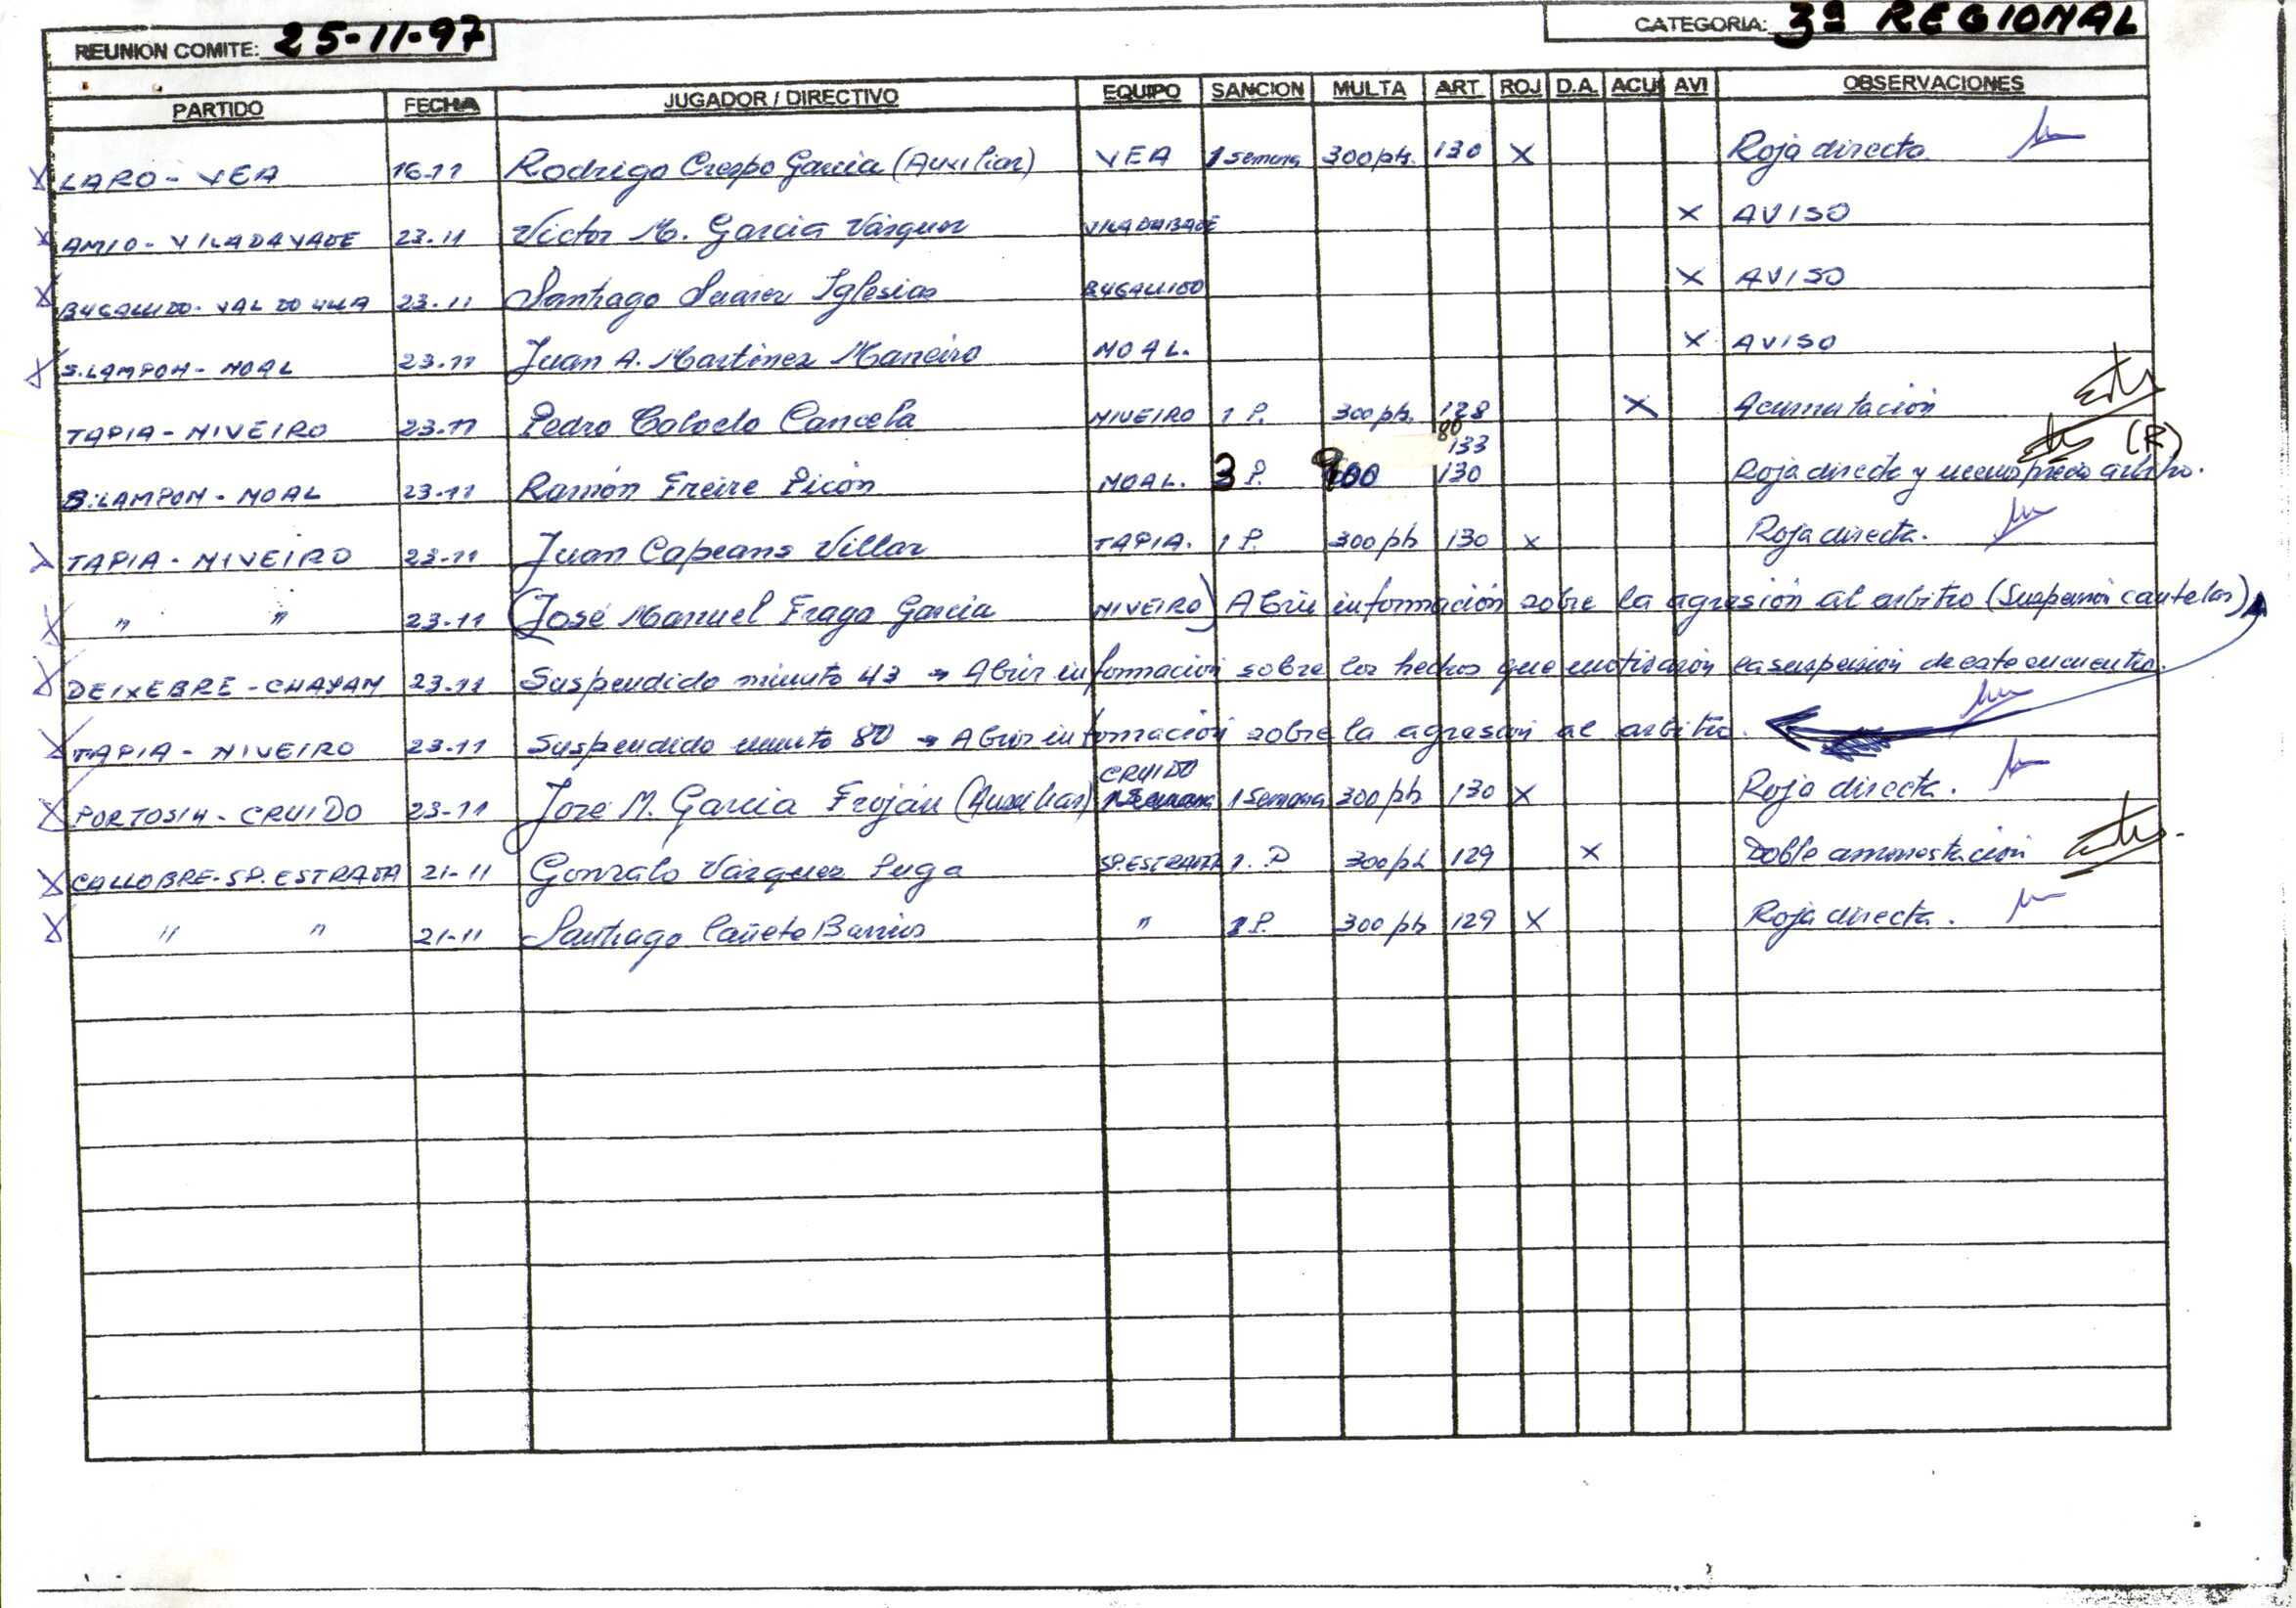 REUNION COMITE: 25-11-97 CATEGORIA: 3ª REGIONAL
PARTIDO FECHA JUGADOR / DIRECTIVO EQUIPO SANCION MULTA ART ROJ D.A. ACU AVI OBSERVACIONES
X LARO - VEA 16-11 Rodrigo Crespo Garcia (Auxiliar) VEA 1 semana 300 pts. 130 X Roja directa
X AMIO - VILADAVADE 23-11 Victor M. Garcia Vázquez VILADABADE X AVISO
X BUGALLIDO - VAL DO ULLA 23-11 Santiago Suarez Iglesias BUGALLIDO X AVISO
X S.LAMPON - NOAL 23-11 Juan A. Martínez Maneiro NOAL. X AVISO
TAPIA - NIVEIRO 23-11 Pedro Cancela NIVEIRO 1 P. 300 pts. 128 X Acumulación
80
133 (R)
S.LAMPON - NOAL 23-11 Ramón Freire Picón NOAL. 3 P. 900 130 Roja directa y menosprecio arbitro.
X TAPIA - NIVEIRO 23-11 Juan Capeans Villar TAPIA. 1 P. 300 pts 130 X Roja directa.
X " " 23-11 (José Manuel Fraga Garcia NIVEIRO) Abrir información sobre la agresión al arbitro (Suspensión cautelar)
X DEIXEBRE - CHAYAN 23-11 Suspendido minuto 43 → Abrir información sobre los hechos que motivaron la suspensión de este encuentro.
X TAPIA - NIVEIRO 23-11 Suspendido minuto 80 → Abrir información sobre la agresión al arbitro.
CRUIDO
X PORTOSIN - CRUIDO 23-11 José M. Garcia Froján (Auxiliar) 1 Semana 300 pts 130 X Roja directa.
X CALLOBRE - SP. ESTRADA 21-11 Gonzalo Vázquez Puga SP.ESTRADA 1. P 300 pts 129 X Doble amonestación
X " " 21-11 Santiago Cañete Barrios " 1 P. 300 pts 129 X Roja directa.